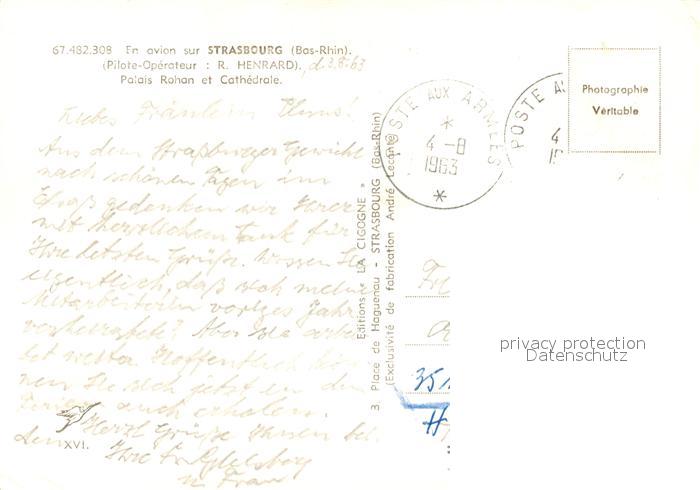 67.482.308 En avion sur STRASBOURG (Bas-Rhin).
(Pilote-Opérateur : R. HENRARD). d. 3.8.63
Palais Rohan et Cathédrale.
Liebes Fräulein
Aus dem Straßburger
nach schönen Tagen im
Elsaß gedenken wir Ihrer
mit herzlichem Dank für
Ihre letzten Grüße. Wissen Sie
eigentlich, daß sich meine
Mitarbeiterin voriges Jahr
verheiratete? Aber sie arbei-
tet weiter. Hoffentlich kön-
nen Sie sich jetzt in den
Ferien auch erholen.
Herzl. Grüße Ihnen
XVI.
Ihre
u Frau
Editions « LA CIGOGNE »
3 Place de Haguenau - STRASBOURG (Bas-Rhin)
(Exclusivité de fabrication André Leconte)
POSTE AUX ARMÉES
4 -8
1963
POSTE A
4
Photographie
Véritable
Fr
35
H
privacy protection
Datenschutz